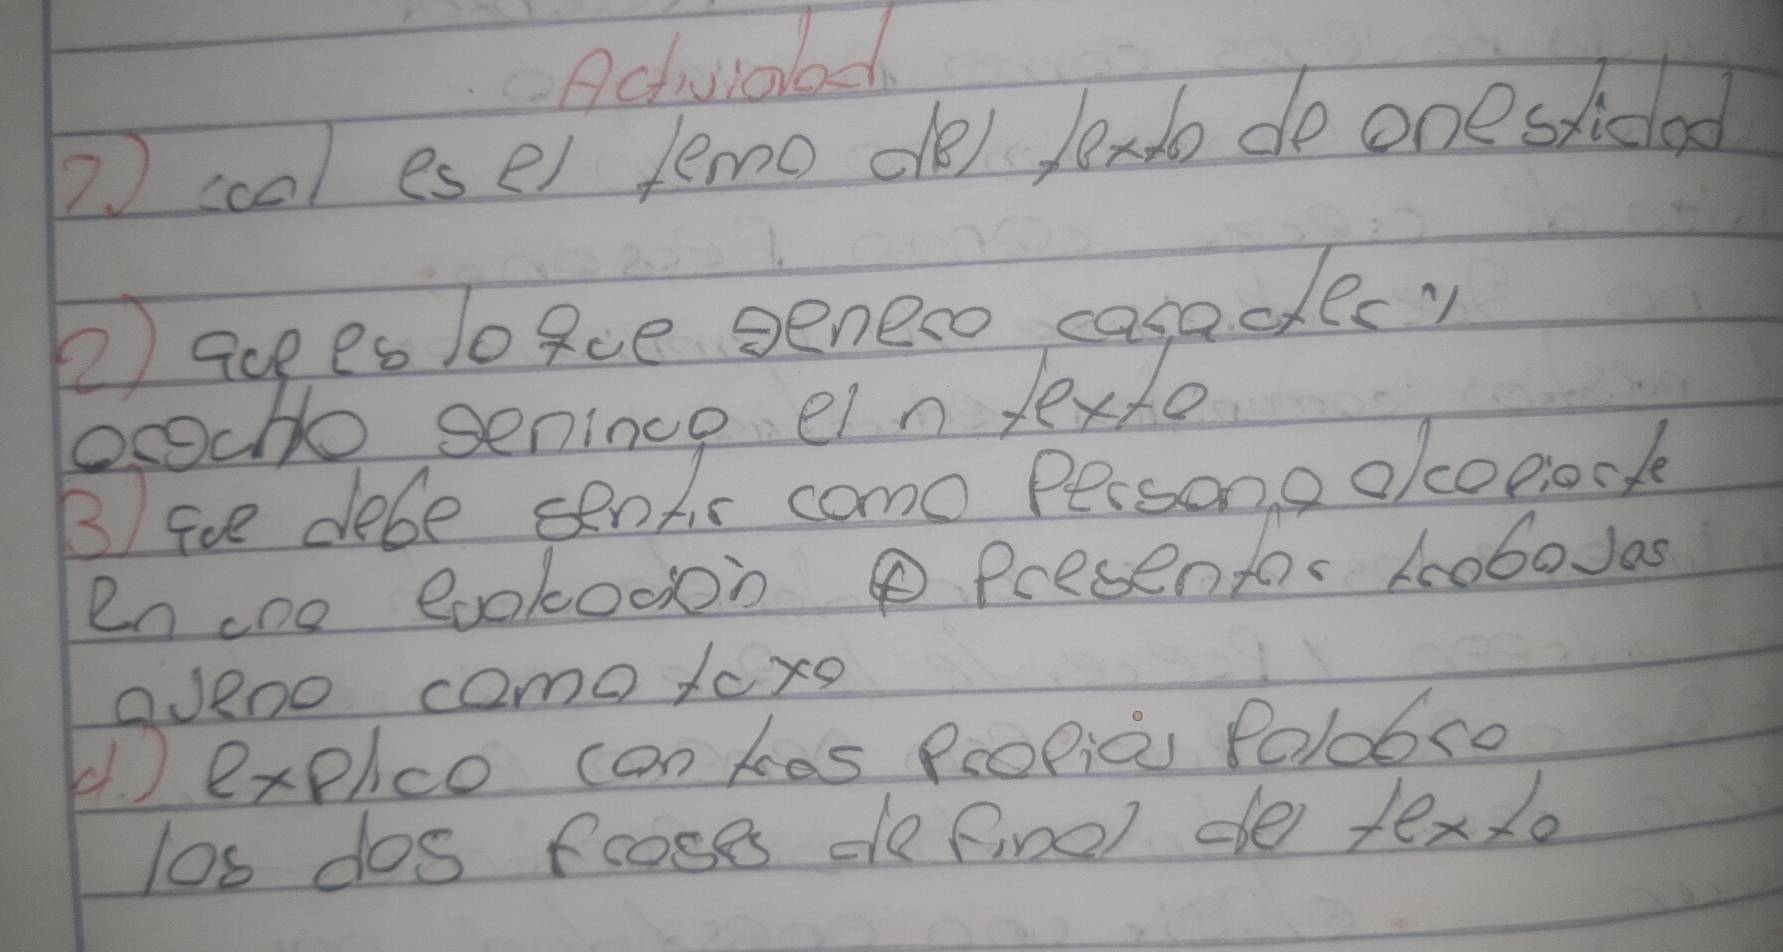 Actividad
1) cual es el tema del texto de onestidad
2) que es lo que genero caracter y
orgullo geninco el n texto
3) que debe sentir como Persona al copiarte
en una evaluación o Presentar trabajas
ajeno como tuyo
4) explica con tus propias Palabra
las dos frases de final del texto